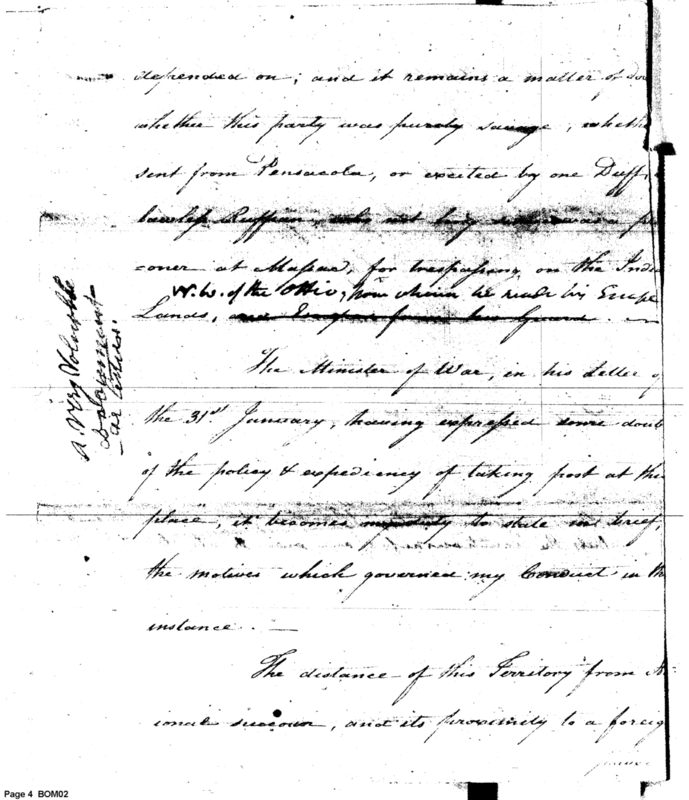 depended on; and it remains a matter of
whether this party was purely savage, wheth
sent from Pensacola, or excited by one Duff,
lawless Ruffian, who not long since was a
=oner at Massac, for trespassing on the Indi
N.W. of the Ohio, from whence he made his Escape
Lands,
The Minister of War, in his Letter of
the 31st January, having expressed some doub
of the policy & expediency of taking post at this
place, it becomes my duty to state in brief,
the motives which governed my Conduct in th
instance. —
The distance of this Territory from
ional succour, and its proximity to a foreig
power
a very Valuable
Document
Page 4 BOM02